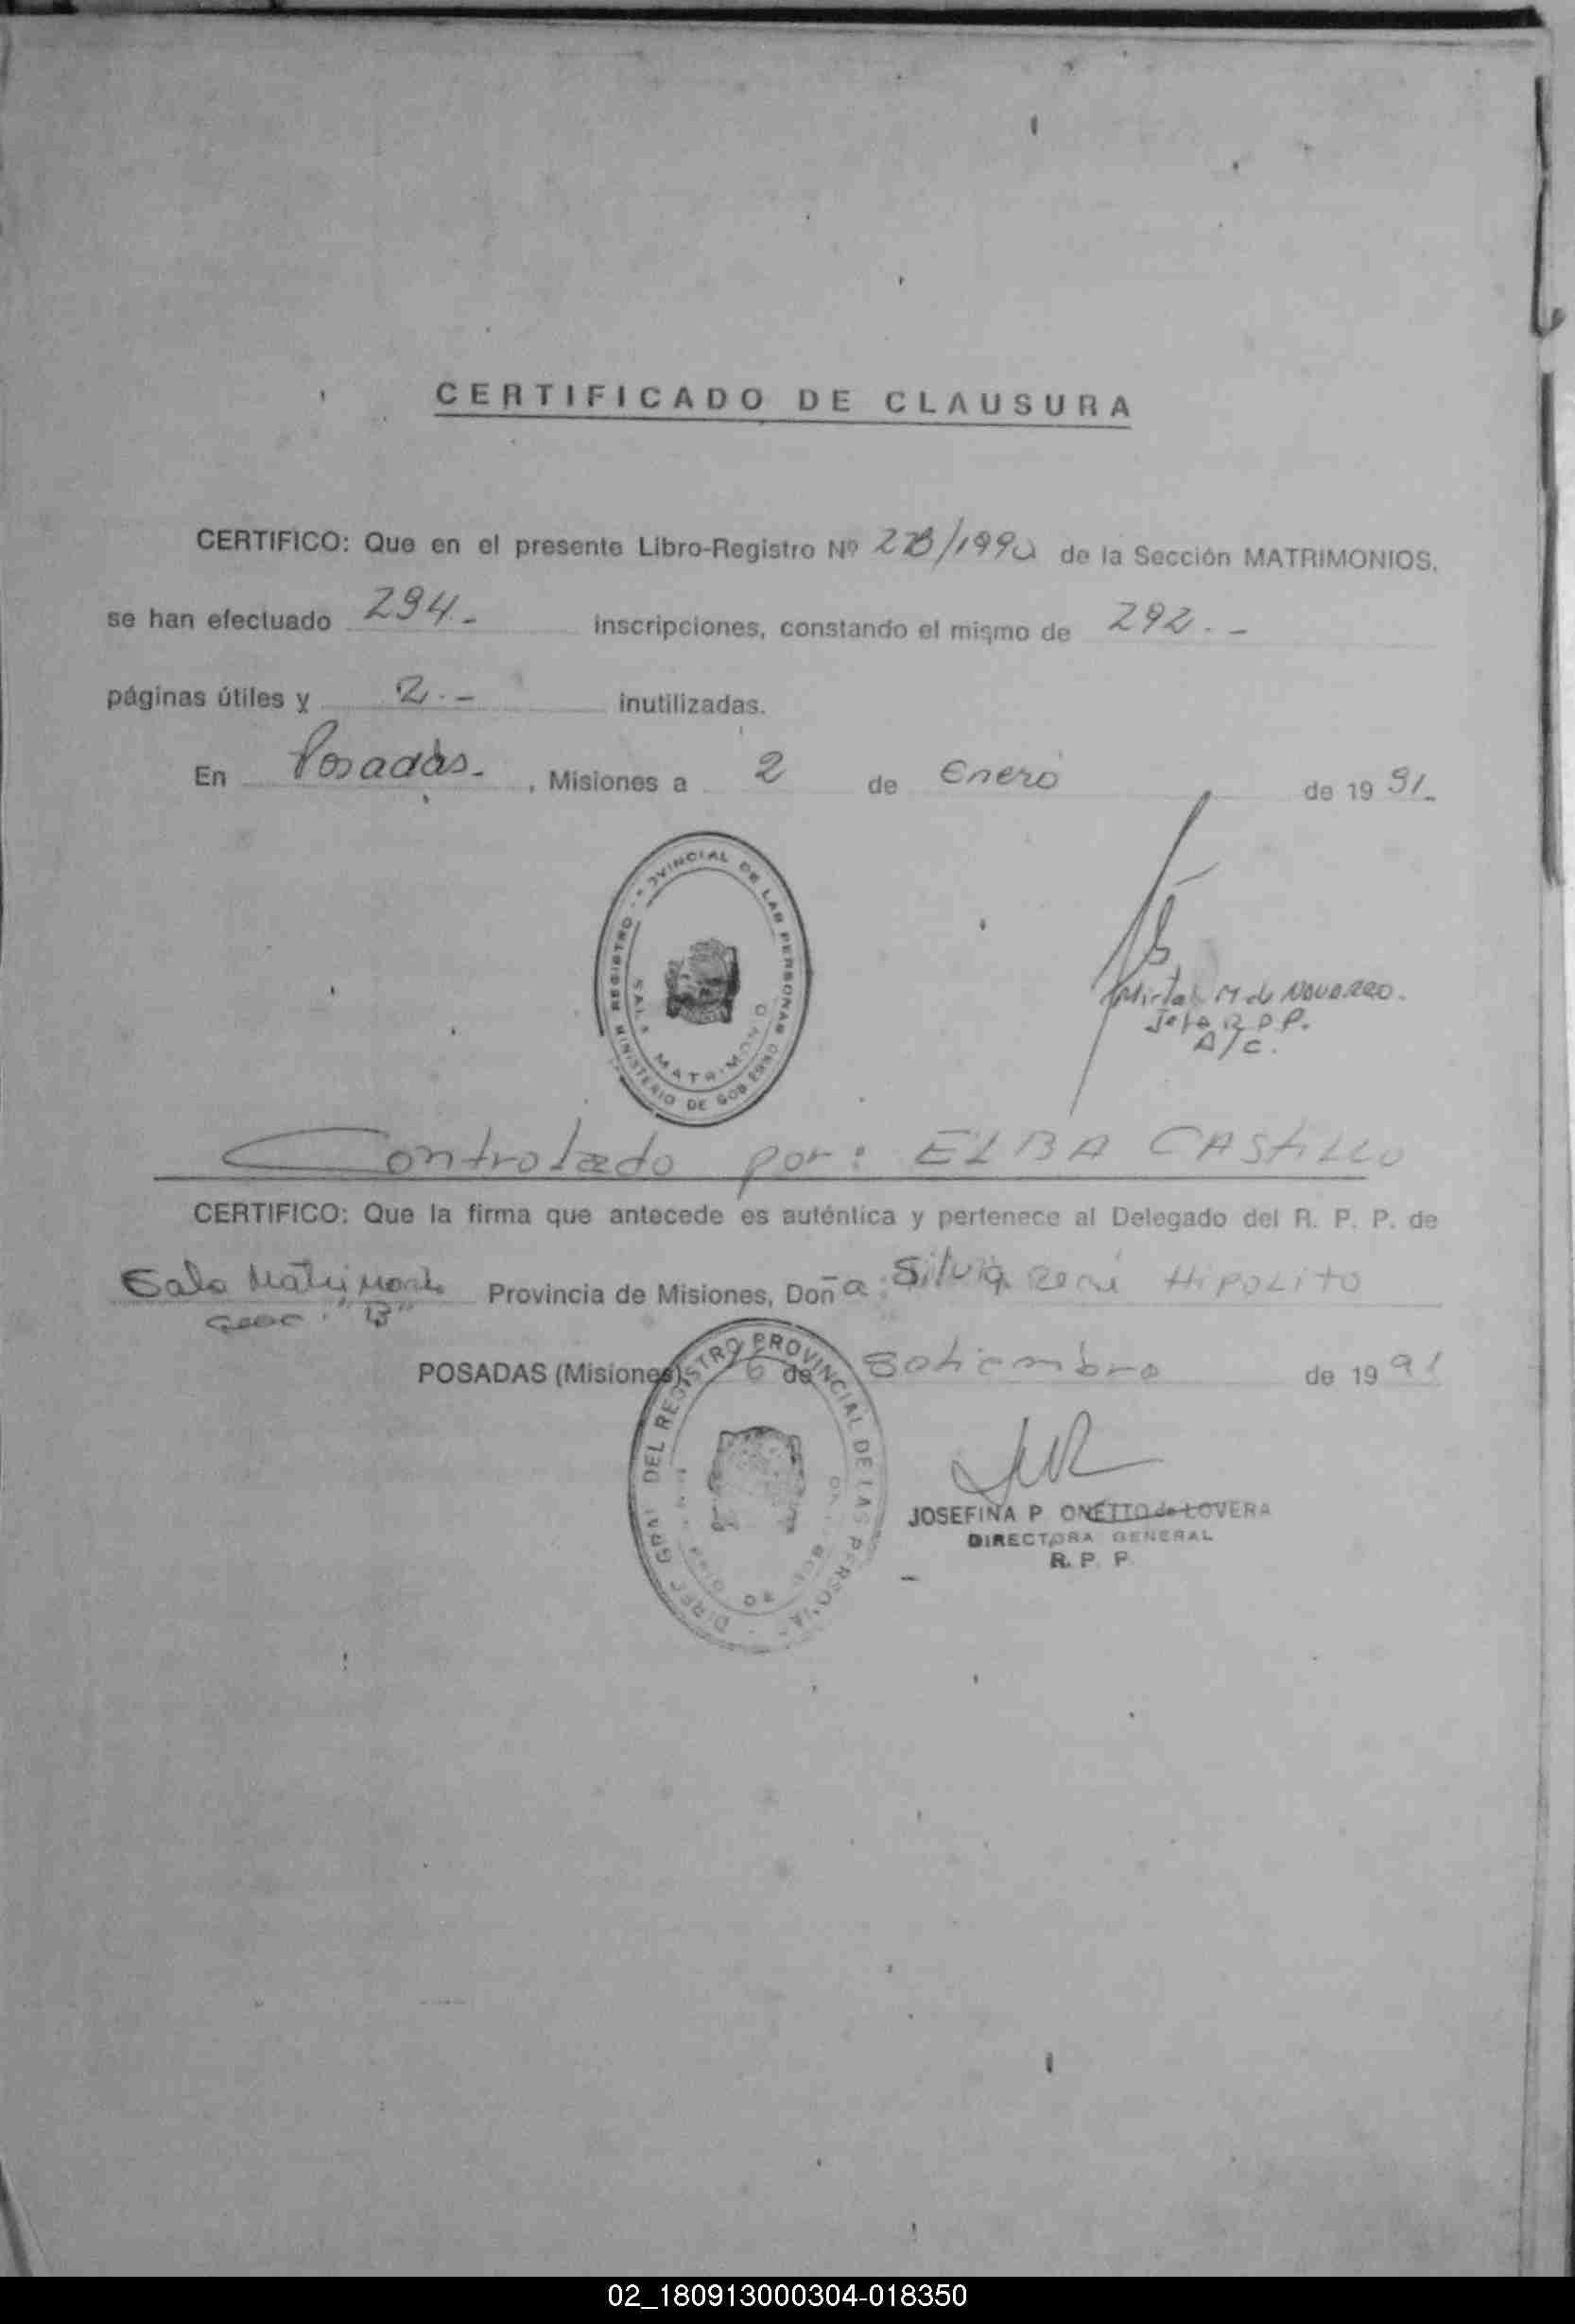 CERTIFICADO DE CLAUSURA
CERTIFICO: Que en el presente Libro-Registro Nº /1990 de la Sección MATRIMONIOS,
se han efectuado 294.- inscripciones, constando el mismo de 292.-
páginas útiles y 2.- inutilizadas.
En Posadas. , Misiones a 2 de Enero de 19 91.
SALA MATRIMONIO
Mirta M de Navarro.
Jefe R P P.
A/C.
Controlado por: ELBA CASTILLO
CERTIFICO: Que la firma que antecede es auténtica y pertenece al Delegado del R. P. P. de
Sala Matrimonio Provincia de Misiones, Doña Silvia René Hipolito
"B"
POSADAS (Misiones), 6 de Setiembre de 19 91
DIREC GRAL DEL REGISTRO PROVINCIAL DE LAS PERSONAS
JOSEFINA P ONETTO de LOVERA
DIRECTORA GENERAL
R. P. P
02_180913000304-018350